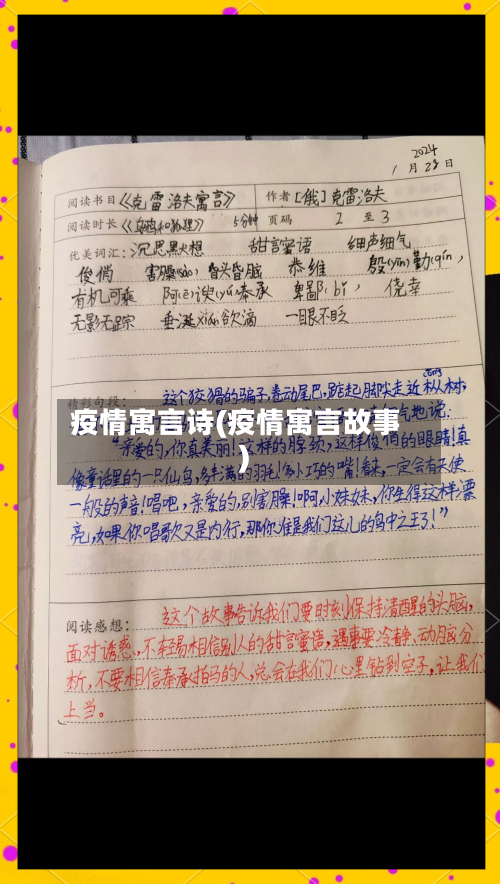 2024
1 月 28 日
阅读书目 《克雷洛夫寓言》 作者 [俄] 克雷洛夫
阅读时长 《乌鸦和狐狸》 5分钟 页码 2 至 3
优美词汇：沉思默想 甜言蜜语 细声细气
俊俏 害臊(sào) 昏头昏脑 恭维 殷(yīn)勤(qín)
有机可乘 阿(ē)谀(yú)奉承 卑鄙(bǐ) 侥幸
无影无踪 垂涎xián欲滴 一眼不眨
精彩句段： 这个狡猾的骗子,卷动尾巴,踮起脚尖走近枞(cōng)树,
气地说:
疫情寓言诗(疫情寓言故事
)
"亲爱的,你真美丽!这样的脖颈,这样俊俏的眼睛!真
像童话里的一只仙鸟,多丰满的羽毛!多小巧的嘴!看来,一定会有天使
一般的声音!唱吧,亲爱的,别害臊!啊,小妹妹,你生得这样漂
亮,如果你唱歌又是内行,那你准是我们这儿的鸟中之王了!"
阅读感想： 这个故事告诉我们要时刻保持清醒的头脑,
面对诱惑,不轻易相信别人的甜言蜜语,遇事要冷静、动脑分
析,不要相信奉承拍马的人,总会在我们心里钻到空子,让我们
上当。